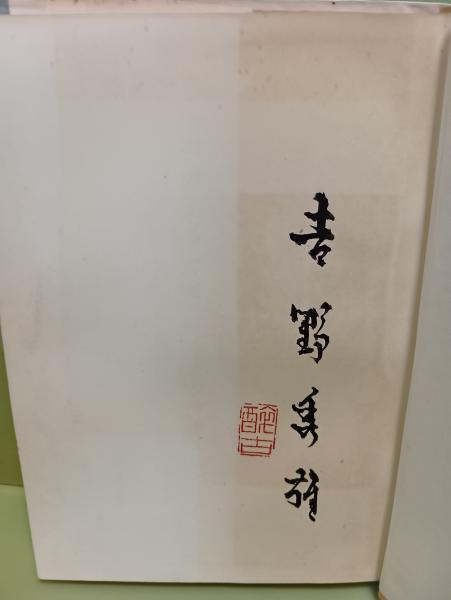 吉野秀雄